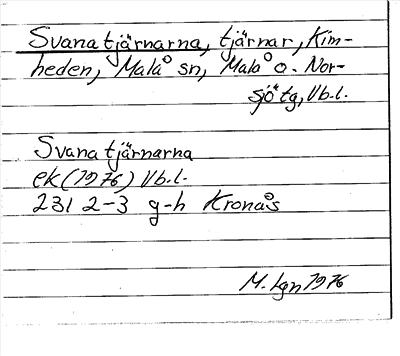 Svanatjärnarna, tjärnar, Kim-
heden, Malå sn, Malå o. Nor-
sjö tg, Vb.l.
Svanatjärnarna
ek (1976) Vb.l.
231 2-3 g-h Kronås
M. Lgn 1976